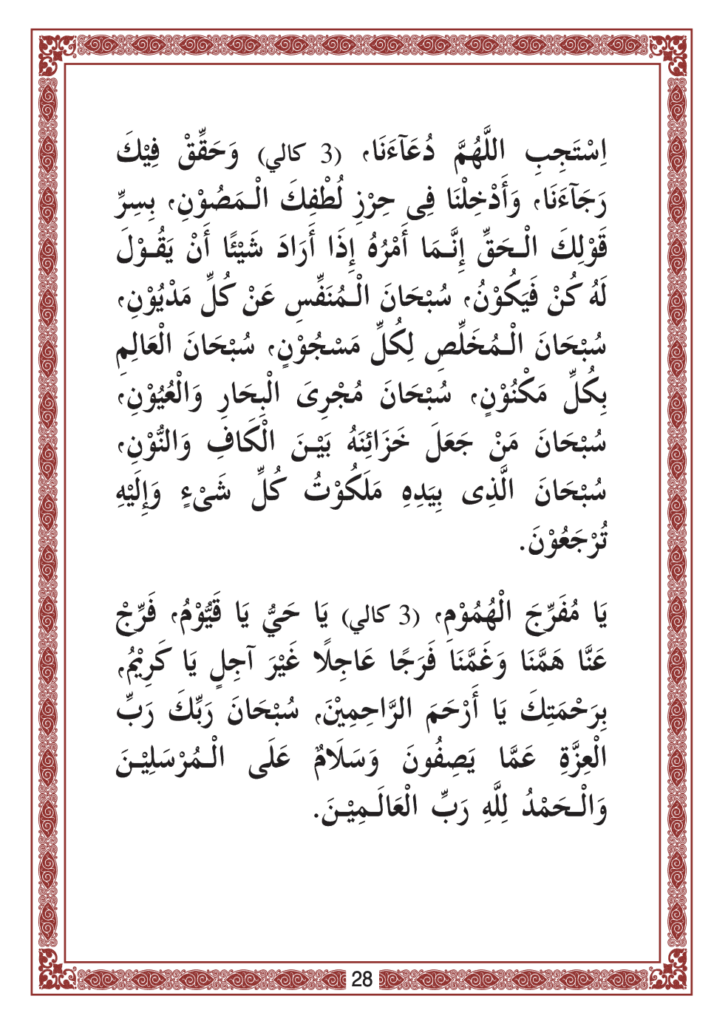 اِسْتَجِبِ اللَّهُمَّ دُعَآءَنَا، (3 كالي) وَحَقِّقْ فِيْكَ
رَجَآءَنَا، وَأَدْخِلْنَا فِى حِرْزِ لُطْفِكَ الْـمَصُوْنِ، بِسِرِّ
قَوْلِكَ الْـحَقِّ إِنَّـمَا أَمْرُهُ إِذَا أَرَادَ شَيْئًا أَنْ يَقُـوْلَ
لَهُ كُنْ فَيَكُوْنُ، سُبْحَانَ الْـمُنَفِّسِ عَنْ كُلِّ مَدْيُوْنٍ،
سُبْحَانَ الْـمُخَلِّصِ لِكُلِّ مَسْجُوْنٍ، سُبْحَانَ الْعَالِمِ
بِكُلِّ مَكْنُوْنٍ، سُبْحَانَ مُجْرِىَ الْبِحَارِ وَالْعُيُوْنِ،
سُبْحَانَ مَنْ جَعَلَ خَزَائِنَهُ بَيْـنَ الْكَافِ وَالنُّوْنِ،
سُبْحَانَ الَّذِى بِيَدِهِ مَلَكُوْتُ كُلِّ شَىْءٍ وَإِلَيْهِ
تُرْجَعُوْنَ.
يَا مُفَرِّجَ الْهُمُوْمِ، (3 كالي) يَا حَيُّ يَا قَيُّوْمُ، فَرِّجْ
عَنَّا هَمَّنَا وَغَمَّنَا فَرَجًا عَاجِلًا غَيْرَ آجِلٍ يَا كَرِيْمُ,
بِرَحْمَتِكَ يَا أَرْحَمَ الرَّاحِمِيْنَ, سُبْحَانَ رَبِّكَ رَبِّ
الْعِزَّةِ عَمَّا يَصِفُونَ وَسَلَامٌ عَلَى الْـمُرْسَلِيْـنَ
وَالْـحَمْدُ لِلَّهِ رَبِّ الْعَالَـمِيْـنَ.
28